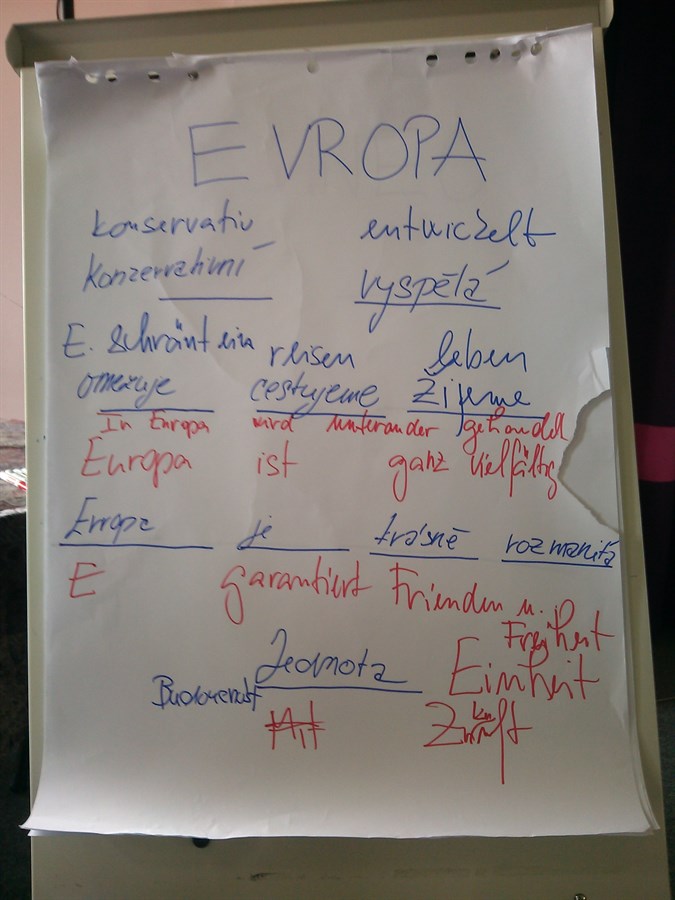 EVROPA
konservativ entwickelt
konzervativní vyspělá
E. schränt ein reisen leben
omezuje cestujeme Žijeme
In Europa wird unterander gehandelt
Europa ist ganz vielfältig
Evropa je krásně rozmanitá
E garantiert Frienden u.
Freiheit
Jednota Einheit
Budoucnost Zukunft